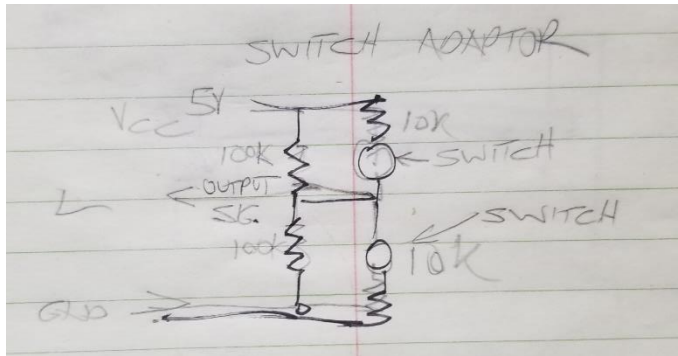 SWITCH ADAPTOR
VCC 5V
10K
100K
SWITCH
OUTPUT
SIG.
SWITCH
100K
10K
GND